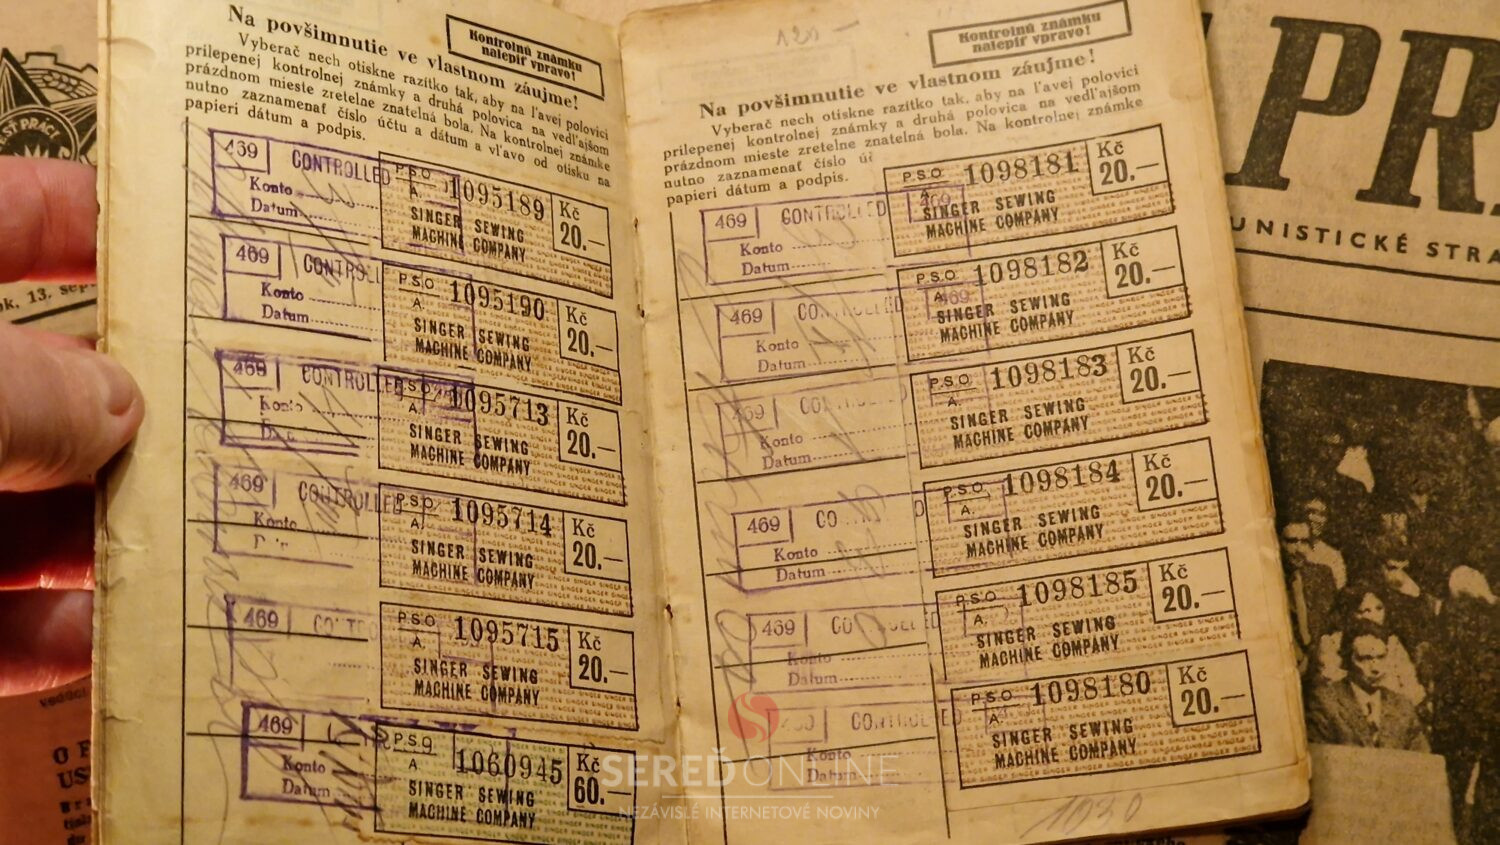 Kontrolnú známku
nalepiť vpravo!
Na povšimnutie ve vlastnom záujme!
Vyberač nech otiskne razítko tak, aby na ľavej polovici
prilepenej kontrolnej známky a druhá polovica na vedľajšom
prázdnom mieste zretelne znatelná bola. Na kontrolnej známke
nutno zaznamenať číslo účtu a dátum a vľavo od otisku na
papieri dátum a podpis.
469 CONTROLLED
Konto
Datum
P.S.O. 1095189 Kč
A. 20.—
SINGER SEWING
MACHINE COMPANY
469
Konto
Datum
P.S.O. 1095190 Kč
A. 20.—
SINGER SEWING
MACHINE COMPANY
469 CONTROLLED
Konto
P.S.O. 1095713 Kč
A. 20.—
SINGER SEWING
MACHINE COMPANY
469 CONTROLLED
Konto
P.S.O. 1095714 Kč
A. 20.—
SINGER SEWING
MACHINE COMPANY
469
P.S.O. 1095715 Kč
A. 20.—
SINGER SEWING
MACHINE COMPANY
469
Konto
Datum
P.S.O. 1060945 Kč
A 60.—
SINGER SEWING
MACHINE COMPANY
120 —
Kontrolnú známku
nalepiť vpravo!
Na povšimnutie ve vlastnom záujme!
Vyberač nech otiskne razítko tak, aby na ľavej polovici
prilepenej kontrolnej známky a druhá polovica na vedľajšom
prázdnom mieste zretelne znatelná bola. Na kontrolnej známke
nutno zaznamenať číslo
papieri dátum a podpis.
469 CONTROLLED
Konto
Datum
P.S.O. 1098181 Kč
A. 469 20.—
SINGER SEWING
MACHINE COMPANY
469 CONTROLLED
Konto
Datum
P.S.O. 1098182 Kč
A. 469 20.—
SINGER SEWING
MACHINE COMPANY
469
Konto
Datum
P.S.O. 1098183 Kč
A. 20.—
SINGER SEWING
MACHINE COMPANY
469
Konto
Datum
P.S.O. 1098184 Kč
A. 20.—
SINGER SEWING
MACHINE COMPANY
469
Konto
Datum
P.S.O. 1098185 Kč
A. 20.—
SINGER SEWING
MACHINE COMPANY
Konto
Datum
P.S.O. 1098180 Kč
A 20.—
SINGER SEWING
MACHINE COMPANY
1030
PR
UNISTICKÉ STRA
13. sep
SEREĎONLINE
NEZÁVISLÉ INTERNETOVÉ NOVINY